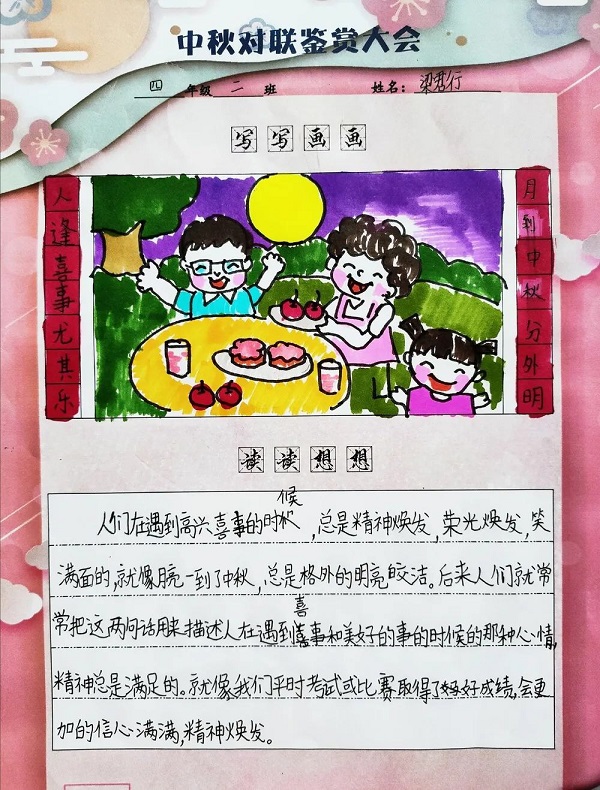 中秋对联鉴赏大会
四年级二班 姓名：梁
写写画画
月到中秋分外明
人逢喜事尤其乐
读读想想
人们在遇到高兴喜事的时候，总是精神焕发，荣光焕发，笑
满面的，就像月亮一到了中秋，总是格外的明亮皎洁。后来人们就常
常把这两句话用来描述人在遇到喜事和美好的事的时候的那种心情，
精神总是满足的。就像我们平时考试或比赛取得了好成绩，会更
加的信心满满，精神焕发。